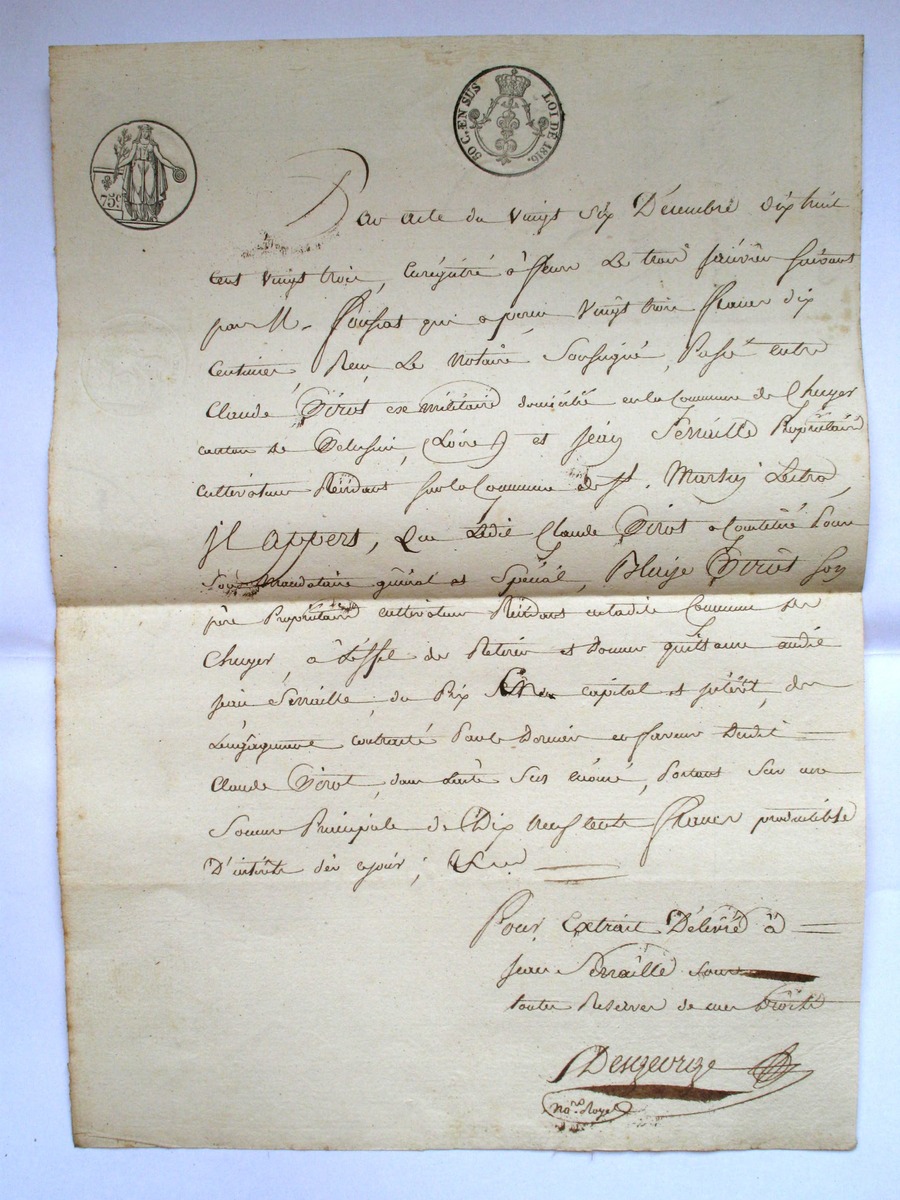 50 C. EN SUS LOI DE 1816.
75c
Par acte du Vingt Six Décembre dix huit
cent Vingt trois, Enrégistré à Le trois Janvier suivant
par M. qui a perçu Vingt trois francs dix
Centimes, Reçu Le Notaire Soussigné, Passé entre
Claude Virot ex militaire domicilié en la Commune de Chuyer
canton de Pelussin, (Loire) et Jean Serraille Propriétaire
cultivateur Résidant sur la Commune de St. Martin
Jl appert, Que Ledit Claude Virot a Constitué Pour
Son Mandataire général et Spécial, Blaize Virot Son
père Propriétaire cultivateur Résidant en ladite Commune de
Chuyer, à L'effet de Retirer et Donner quittance audit
Jean Serraille, du Prix En capital et intérêt, de
L'engagement contracté Par le Dernier en faveur Dudit
Claude Virot, dans L'acte Sus énoncé, Portant Sur une
Somme Principale de Dix neuf Cents francs productible
D'intérêts dès ce jour;
Pour Extrait Délivré à
Jean Serraille sous
toutes Reserves de mes Droits
Desgeorge
No.re Royal